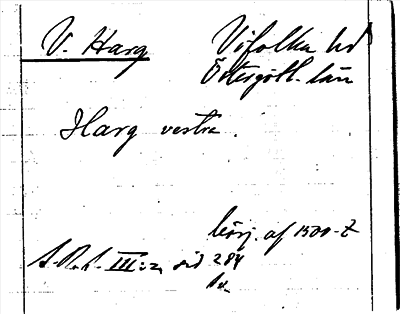 V. Harg Vifolka hd
Östergötl. län
Harg vestra.
börj. af 1500-t
S.R.L. III:2, sid 284